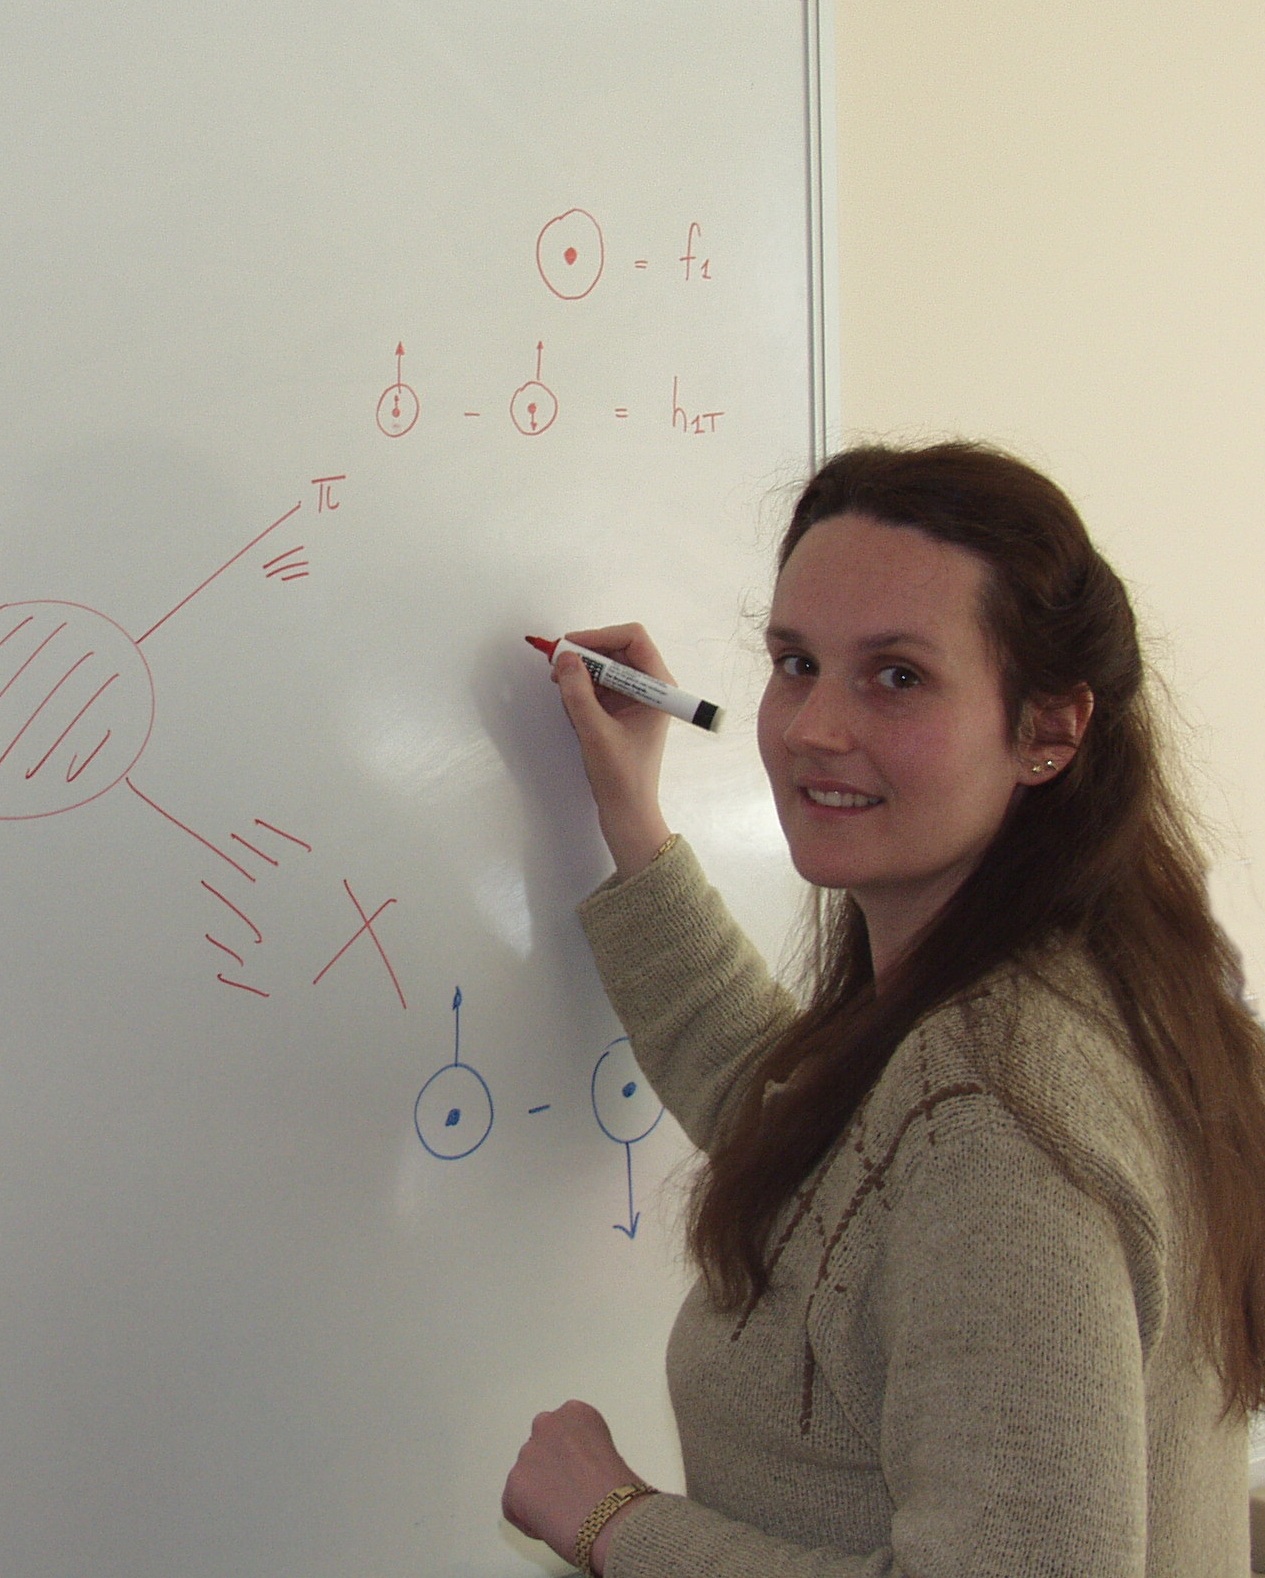 = f1
- = h1T
π
X
-